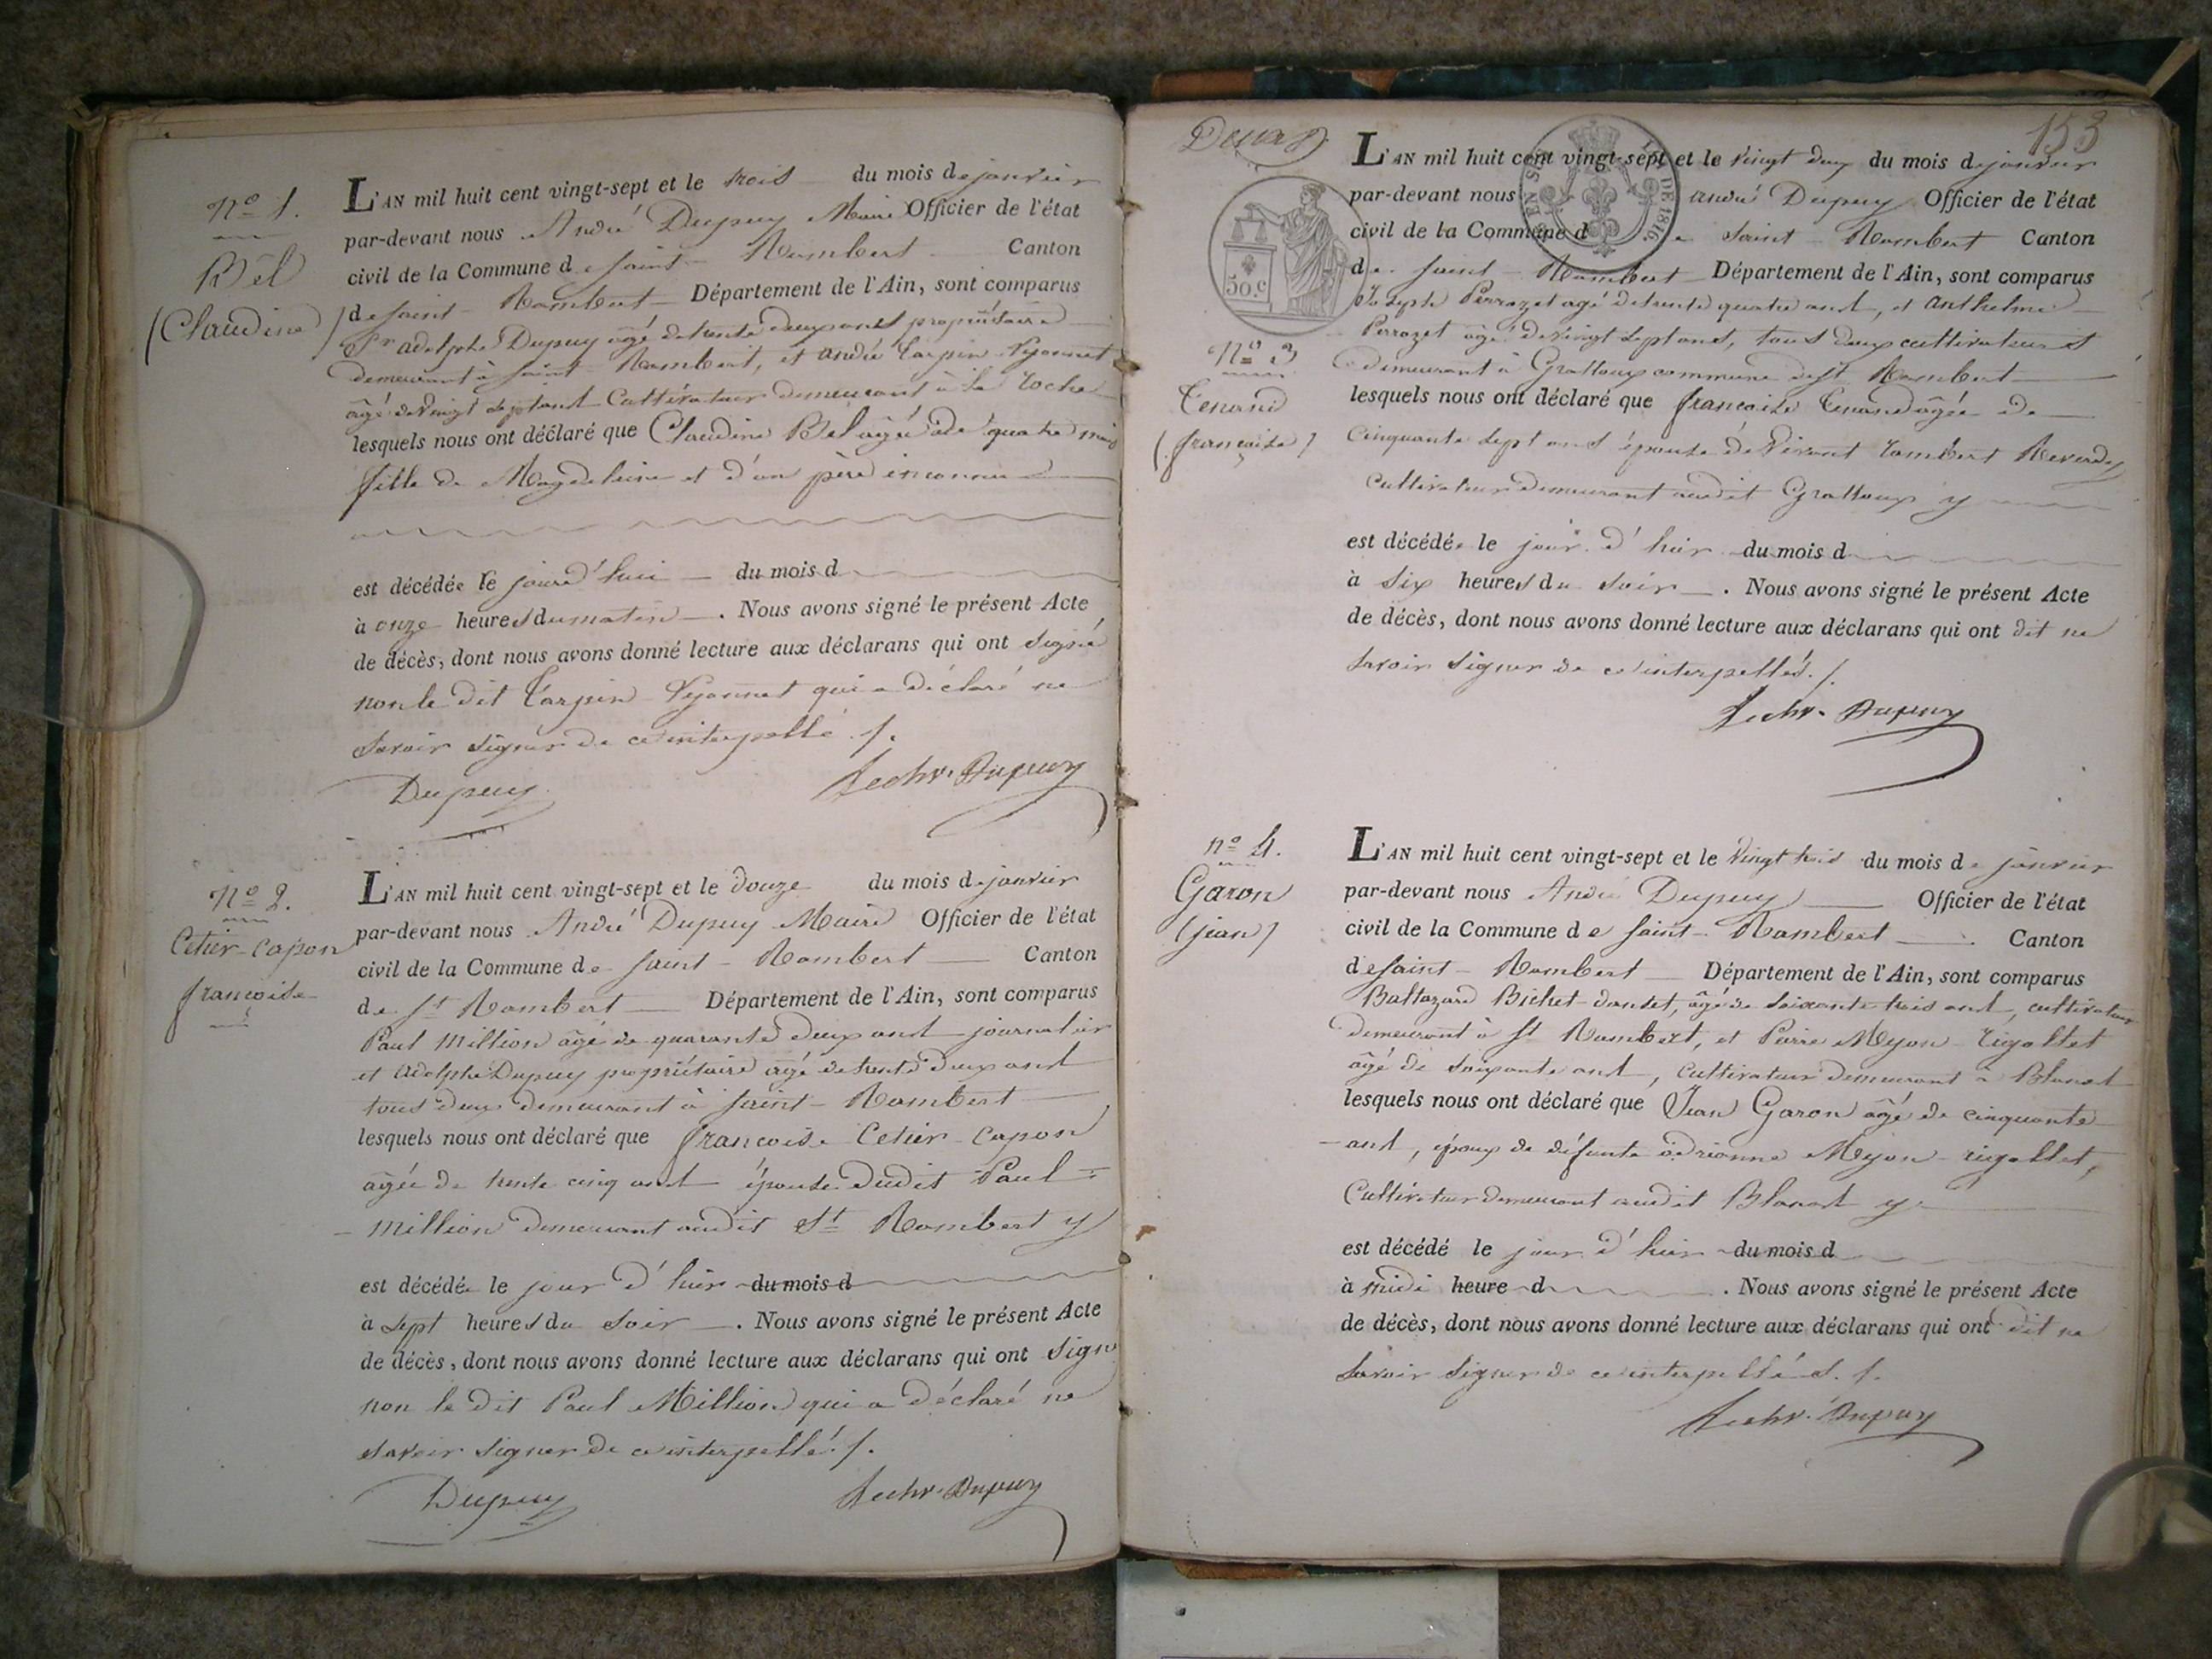 nº 1.
Bel
(Claudine)
L'AN mil huit cent vingt-sept et le trois du mois de janvier
par-devant nous André Dupuy Maire Officier de l'état
civil de la Commune de saint-Rambert Canton
de saint-Rambert Département de l'Ain, sont comparus
Sr adolphe Dupuy âgé de trente deux ans propriétaire
demeurant à saint Rambert, et andré tarpin-lyonnet
âgé de vingt sept ans Cultivateur demeurant à la roche
lesquels nous ont déclaré que Claudine Bel âgée de quatre mois
fille de Magdeleine et d'un père inconnu
est décédée le jourd'hui du mois d
à onze heures du matin. Nous avons signé le présent Acte
de décès, dont nous avons donné lecture aux déclarans qui ont signé
non le dit tarpin-lyonnet qui a déclaré ne
savoir signer de ce interpellé ./.
Dupuy
Dupuy
nº 2.
Cetier-capon
françoise
L'AN mil huit cent vingt-sept et le douze du mois de janvier
par-devant nous André Dupuy Maire Officier de l'état
civil de la Commune de saint-Rambert Canton
de St Rambert Département de l'Ain, sont comparus
Paul Million âgé de quarante deux ans journalier
et adolphe Dupuy propriétaire âgé de trente deux ans
tous deux demeurant à saint-Rambert
lesquels nous ont déclaré que françoise Cetier-capon
âgée de trente cinq ans épouse dudit Paul
Million demeurant audit St Rambert y
est décédée le jour d'hier du mois d
à sept heures du soir. Nous avons signé le présent Acte
de décès, dont nous avons donné lecture aux déclarans qui ont signé
non le dit Paul Million qui a déclaré ne
savoir signer de ce interpellé ./.
Dupuy
Dupuy
153
50.c
EN SUS
DE 1816
nº 3
tenand
(françoise)
L'AN mil huit cent vingt-sept et le vingt deux du mois de janvier
par-devant nous andré Dupuy Officier de l'état
civil de la Commune de saint-Rambert Canton
de saint-Rambert Département de l'Ain, sont comparus
Joseph Perrozet agé de trente quatre ans, et anthelme
Perrozet âgé de vingt sept ans, tous deux cultivateurs
demeurant à Grattoux commune de St Rambert
lesquels nous ont déclaré que françoise tenand âgée de
cinquante sept ans épouse de Vivant rambert
cultivateur demeurant audit Grattoux y
est décédée le jour d'hier du mois d
à six heures du soir. Nous avons signé le présent Acte
de décès, dont nous avons donné lecture aux déclarans qui ont dit ne
savoir signer de ce interpellés ./.
Dupuy
nº 4.
Garon
(jean)
L'AN mil huit cent vingt-sept et le vingt trois du mois de janvier
par-devant nous André Dupuy Officier de l'état
civil de la Commune de saint-Rambert Canton
de saint-Rambert Département de l'Ain, sont comparus
Baltazard Bichet-danset, âgé de soixante trois ans, cultivateur
demeurant à St Rambert, et Pierre Myon-rigollet
âgé de soixante ans, cultivateur demeurant à Blanat
lesquels nous ont déclaré que Jean Garon âgé de cinquante
ans, époux de défunte adrianne Myon-rigollet,
Cultivateur demeurant audit Blanat y
est décédé le jour d'hier du mois d
à midi heure d. Nous avons signé le présent Acte
de décès, dont nous avons donné lecture aux déclarans qui ont dit ne
savoir signer de ce interpellés ./.
Dupuy